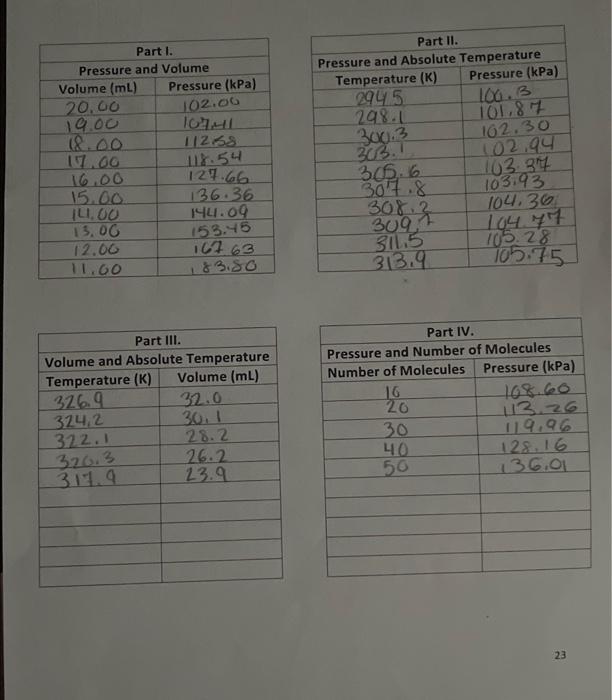 Part I.
Pressure and Volume
Volume (mL) Pressure (kPa)
20.00 102.00
19.00 107.41
18.00 112.58
17.00 118.54
16.00 127.66
15.00 136.36
14.00 144.09
13.00 153.45
12.00 167.63
11.00 183.80
Part II.
Pressure and Absolute Temperature
Temperature (K) Pressure (kPa)
294.5 100.3
298.1 101.87
300.3 102.30
303.1 102.94
305.6 103.37
307.8 103.93
308.2 104.36
309.7 104.77
311.5 105.28
313.9 105.75
Part III.
Volume and Absolute Temperature
Temperature (K) Volume (mL)
326.9 32.0
324.2 30.1
322.1 28.2
320.3 26.2
317.9 23.9
Part IV.
Pressure and Number of Molecules
Number of Molecules Pressure (kPa)
10 108.60
20 113.26
30 119.96
40 128.16
50 136.01
23